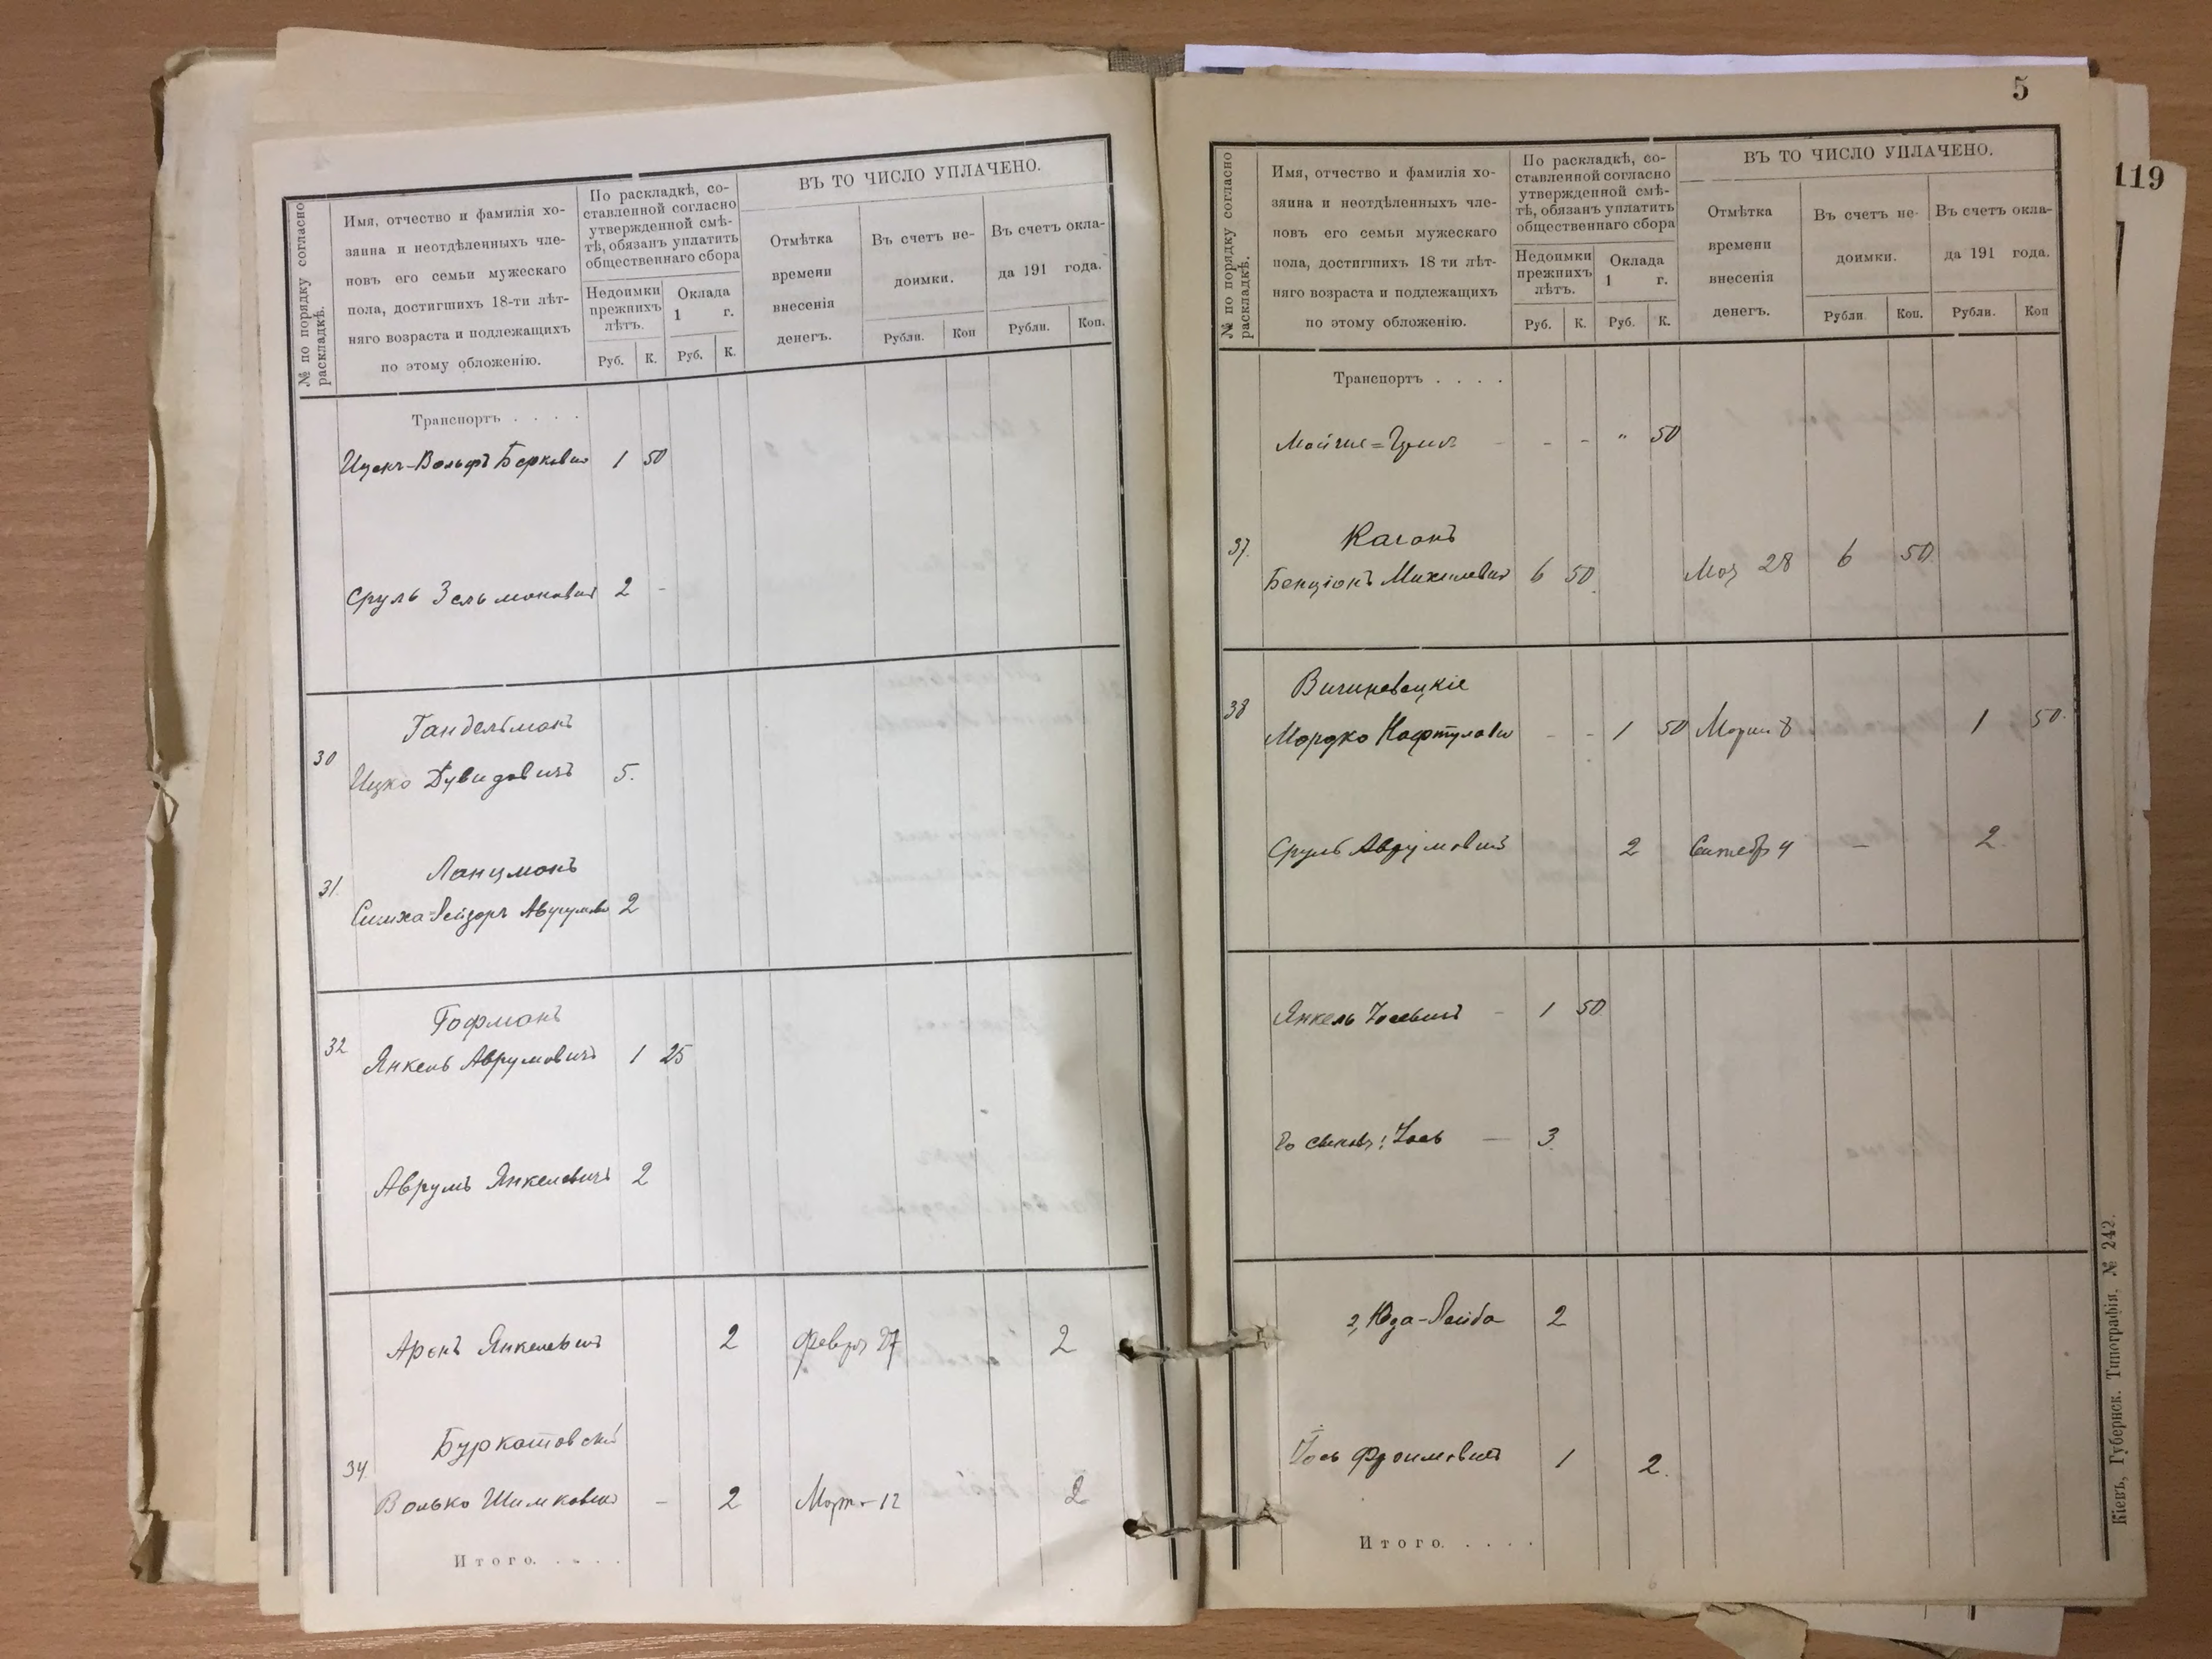 № по порядку согласно раскладкѣ.
Имя, отчество и фамилія хо-
зяина и неотдѣленныхъ чле-
новъ его семьи мужескаго
пола, достигшихъ 18-ти лѣт-
няго возраста и подлежащихъ
по этому обложенію.
По раскладкѣ, со-
ставленной согласно
утвержденной смѣ-
тѣ, обязанъ уплатить
общественнаго сбора
Недоимки
прежнихъ
лѣтъ.
Оклада
1 г.
Руб. К. Руб. К.
ВЪ ТО ЧИСЛО УПЛАЧЕНО.
Отмѣтка
времени
внесенія
денегъ.
Въ счетъ не-
доимки.
Рубли. Коп
Въ счетъ окла-
да 191 года.
Рубли. Коп.
Транспортъ . . . .
Ицекъ-Вольфъ Берковичъ 1 50
Сруль Зельмановичъ 2 -
Гандельманъ
30 Ицко Дувидовичъ 5.
Ланцманъ
31. Симха-Лейзоръ Аврумов 2
Гофманъ
32 Янкель Аврумовичъ 1 25
Аврумъ Янкелевичъ 2
Аронъ Янкелевичъ 2 Февр 27 2
Буркатовскій
34. Волько Шимковичъ - 2 Март - 12 2
Итого. . . . .
5
119
№ по порядку согласно раскладкѣ.
Имя, отчество и фамилія хо-
зяина и неотдѣленныхъ чле-
новъ его семьи мужескаго
пола, достигшихъ 18 ти лѣт-
няго возраста и подлежащихъ
по этому обложенію.
По раскладкѣ, со-
ставленной согласно
утвержденной смѣ-
тѣ, обязанъ уплатить
общественнаго сбора
Недоимки
прежнихъ
лѣтъ.
Оклада
1 г.
Руб. К. Руб. К.
ВЪ ТО ЧИСЛО УПЛАЧЕНО.
Отмѣтка
времени
внесенія
денегъ.
Въ счетъ не-
доимки.
Рубли Коп.
Въ счетъ окла-
да 191 года.
Рубли. Коп
Транспортъ . . . .
- - - " 50
Каганъ
37. Бенціонъ Михелевичъ 6 50. Мая 28 6 50.
Вишневецкіе
38 Мордко Нафтулович - - 1 50 Марта 8 1 50.
Сруль Аврумовичъ 2 Сентябр 4 - 2
Янкель Іосевичъ - 1 50
Іось - 3.
2, Юда-Лейба 2
Іось Фроимовичъ 1 2.
Итого. . . . .
Кіевъ, Губернск. Типографія, № 242.